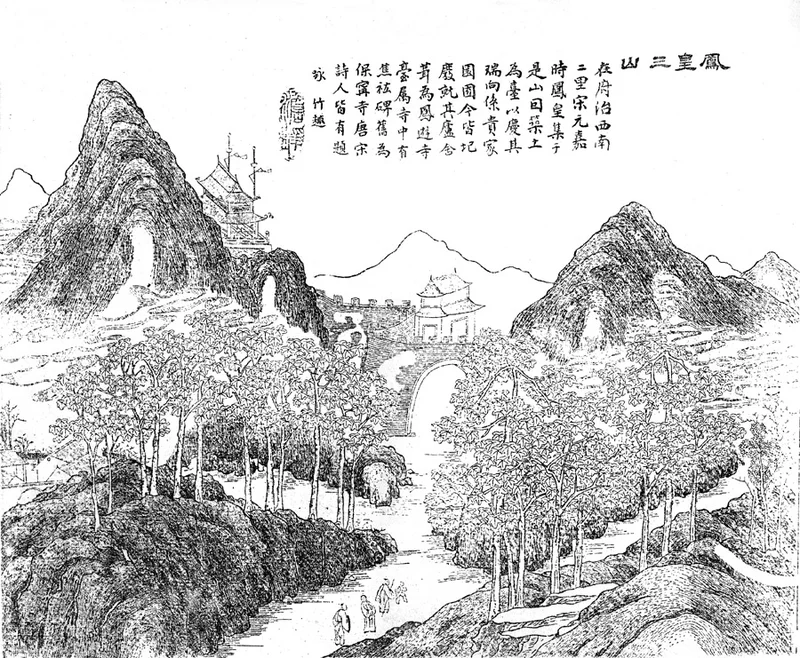 鳳皇三山
在府治西南
二里宋元嘉
時鳳皇集于
是山因築土
為臺以慶其
瑞向係貴家
園圃今皆圮
廢就其廬舍
葺為鳳遊寺
臺属寺中有
焦竑碑舊為
保寧寺唐宋
詩人皆有題
咏 竹趣